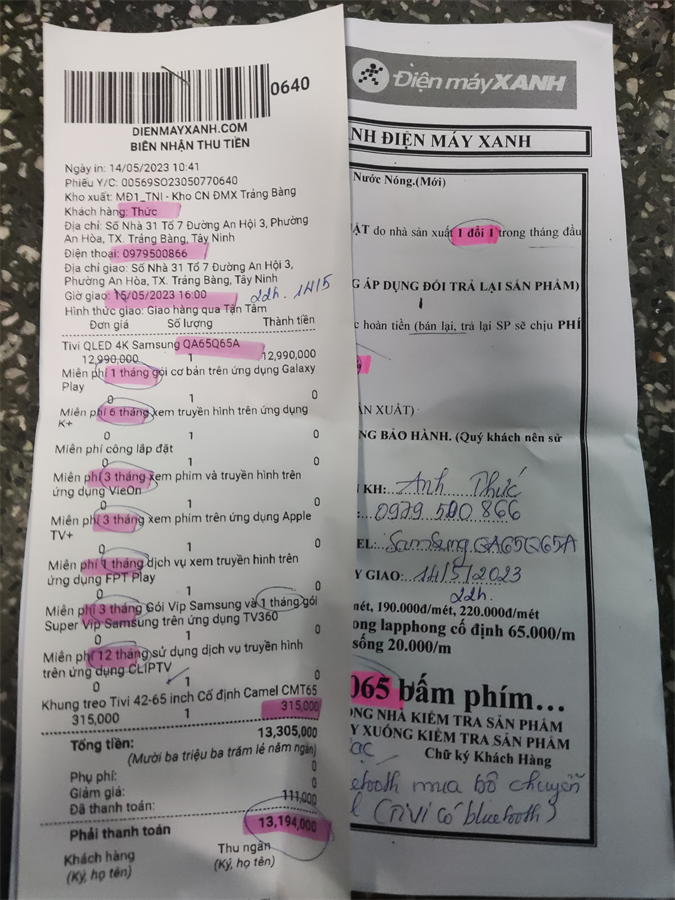 0640
DIENMAYXANH.COM
BIÊN NHẬN THU TIỀN
Ngày in: 14/05/2023 10:41
Phiếu Y/C: 00569SO23050770640
Kho xuất: MĐ1_TNI - Kho CN ĐMX Trảng Bàng
Khách hàng: Thức
Địa chỉ: Số Nhà 31 Tổ 7 Đường An Hội 3, Phường
An Hòa, TX. Trảng Bàng, Tây Ninh
Điện thoại: 0979500866
Địa chỉ giao: Số Nhà 31 Tổ 7 Đường An Hội 3,
Phường An Hòa, TX. Trảng Bàng, Tây Ninh
Giờ giao: 15/05/2023 16:00 22h. 14/5
Hình thức giao: Giao hàng qua Tận Tâm
Đơn giá Số lượng Thành tiền
Tivi QLED 4K Samsung QA65Q65A
12,990,000 1 12,990,000
Miễn phí 1 tháng gói cơ bản trên ứng dụng Galaxy
Play
0 1 0
Miễn phí 6 tháng xem truyền hình trên ứng dụng
K+
0 1 0
Miễn phí công lắp đặt
0 1 0
Miễn phí 3 tháng xem phim và truyền hình trên
ứng dụng VieOn
0 1 0
Miễn phí 3 tháng xem phim trên ứng dụng Apple
TV+
0 1 0
Miễn phí 1 tháng dịch vụ xem truyền hình trên
ứng dụng FPT Play
0 1 0
Miễn phí 3 tháng Gói Vip Samsung và 1 tháng gói
Super Vip Samsung trên ứng dụng TV360
0 1 0
Miễn phí 12 tháng sử dụng dịch vụ truyền hình
trên ứng dụng CLIPTV
0 1 0
Khung treo Tivi 42-65 inch Cố định Camel CMT65
315,000 1 315,000
Tổng tiền: 13,305,000
(Mười ba triệu ba trăm lẻ năm ngàn)
Phụ phí: 0
Giảm giá: 0
Đã thanh toán: 111,000
Phải thanh toán 13,194,000
Khách hàng Thu ngân
(Ký, họ tên) (Ký, họ tên)
Điện máy XANH
NH ĐIỆN MÁY XANH
Nước Nóng.(Mới)
ẬT do nhà sản xuất 1 đổi 1 trong tháng đầu
G ÁP DỤNG ĐỔI TRẢ LẠI SẢN PHẨM)
c hoàn tiền (bán lại, trả lại SP sẽ chịu PHÍ
ẢN XUẤT)
NG BẢO HÀNH. (Quý khách nên sử
N KH: Anh Thức
: 0979 500 866
EL: Samsung QA65Q65A
Y GIAO: 14/5/2023
22h.
nét, 190.000đ/mét, 220.000/mét
ong lapphong cố định 65.000/m
sống 20.000/m
065 bấm phím...
ÔNG NHÀ KIỂM TRA SẢN PHẨM
Y XUỐNG KIỂM TRA SẢN PHẨM
Chữ ký Khách Hàng
etooth mua bộ chuyển
(Tivi có bluetooth)